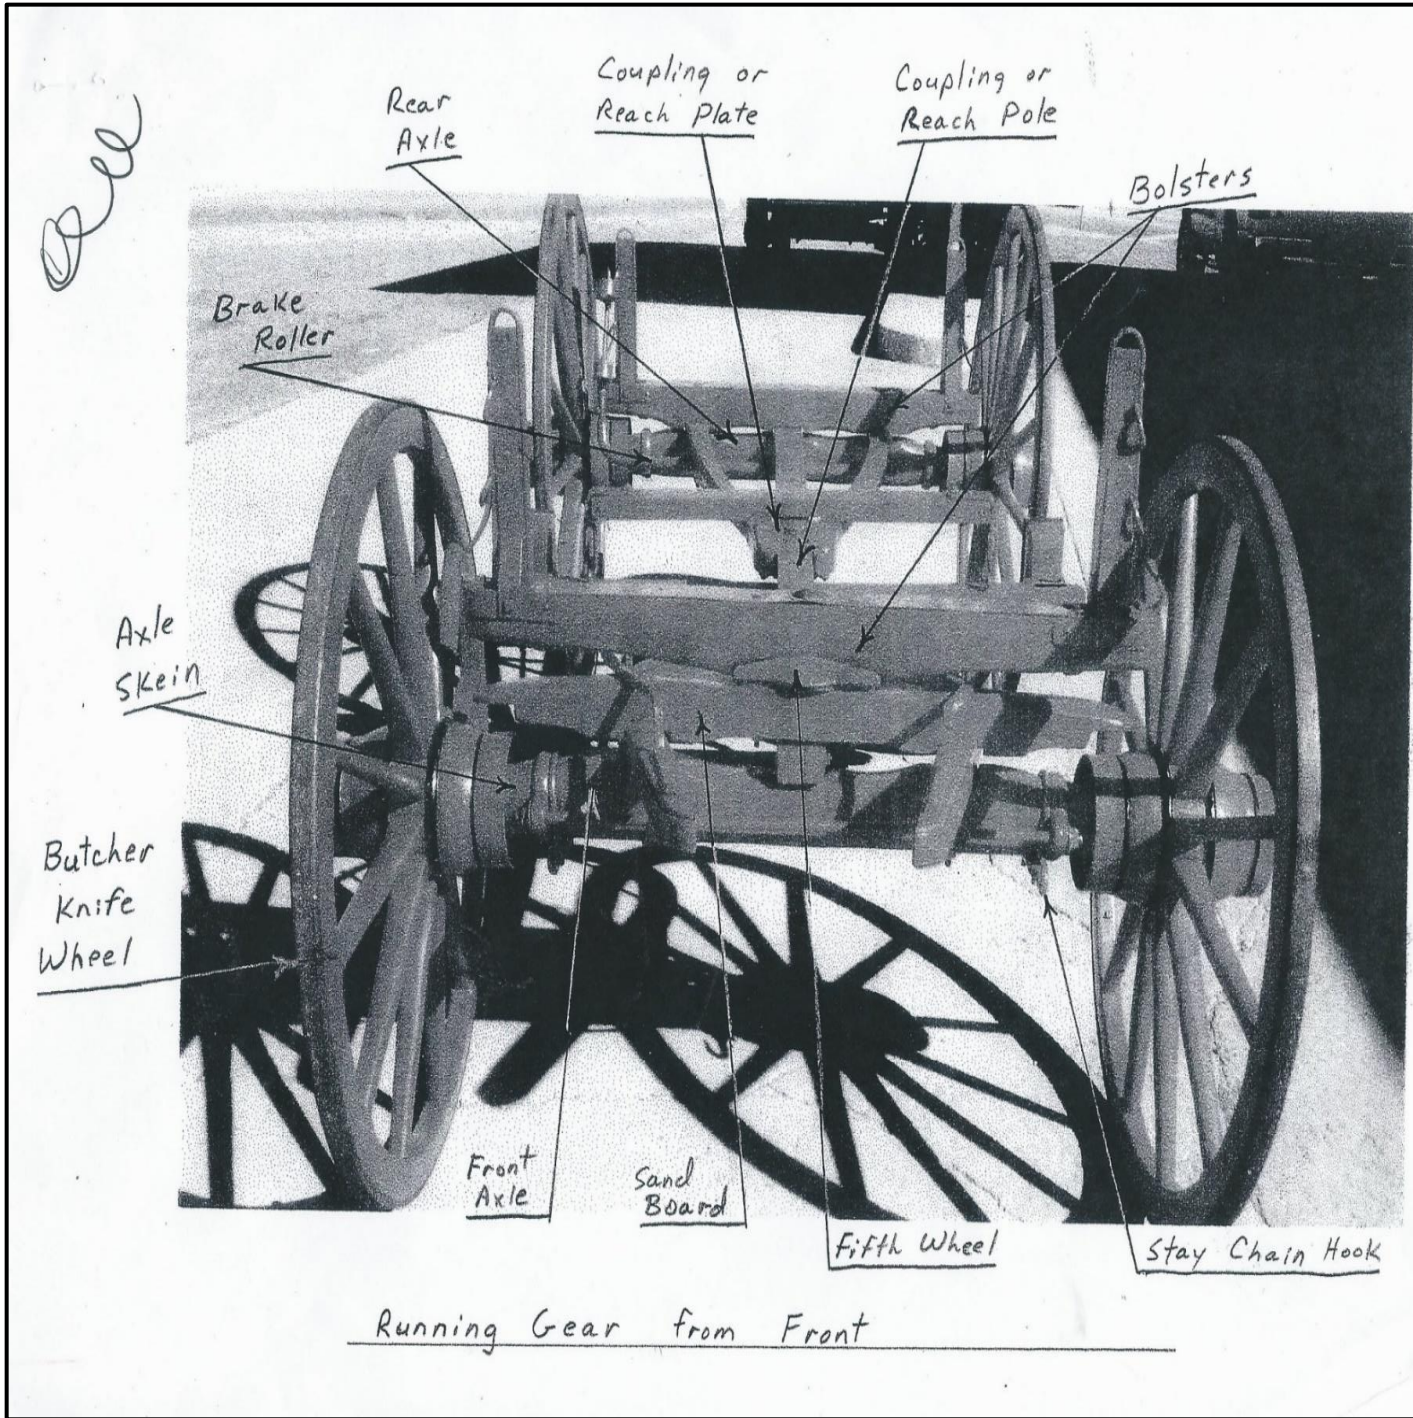 Coupling or
Reach Plate
Coupling or
Reach Pole
Rear
Axle
Bolsters
Brake
Roller
Axle
Skein
Butcher
Knife
Wheel
Front
Axle
Sand
Board
Fifth Wheel
Stay Chain Hook
Running Gear from Front